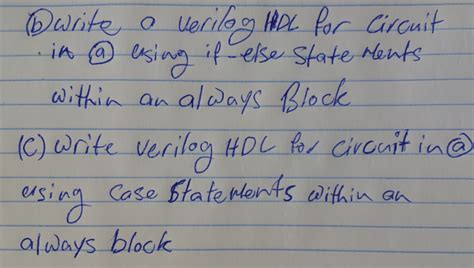 (b) Write a verilog HDL for Circuit
in (a) using if-else Statements
within an always Block
(C) Write verilog HDL for circuit in (a)
using Case Statements within an
always block